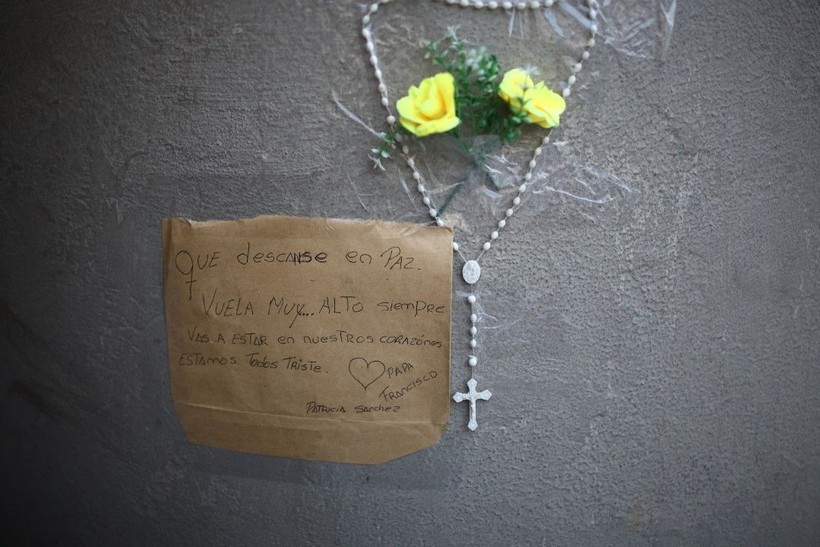 QUE descanse en PAZ.
VUELA MUY... ALTO siempre
VAS A ESTAR en nuestros corazónes
ESTAMOS Todos TRISTE.
PAPA
FRANCISCO
Patricia Sanchez